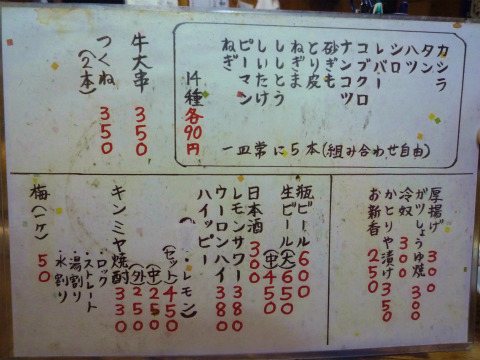 カシラ
タン
ハツ
シロ
レバー
コブクロ
ナンコツ
砂ぎも
とり皮
ねぎま
ししとう
しいたけ
ピーマン
ねぎ
一皿常に5本(組み合わせ自由)
14種各90円
牛大串 350
つくね(2本) 350
厚揚げ 300
ガツしょうゆ焼 350
冷奴 300
かとりやま漬け 350
お新香 250
瓶ビール 600
生ビール(大) 650
(中) 450
日本酒 300
レモンサワー 380
ウーロンハイ 380
ハイッピー(・レモン)
(セット) 450
(中) 250
(外) 250
キンミヤ焼酎 330
・ロック
・ストレート
・湯割り
・水割り
梅(1ケ) 50